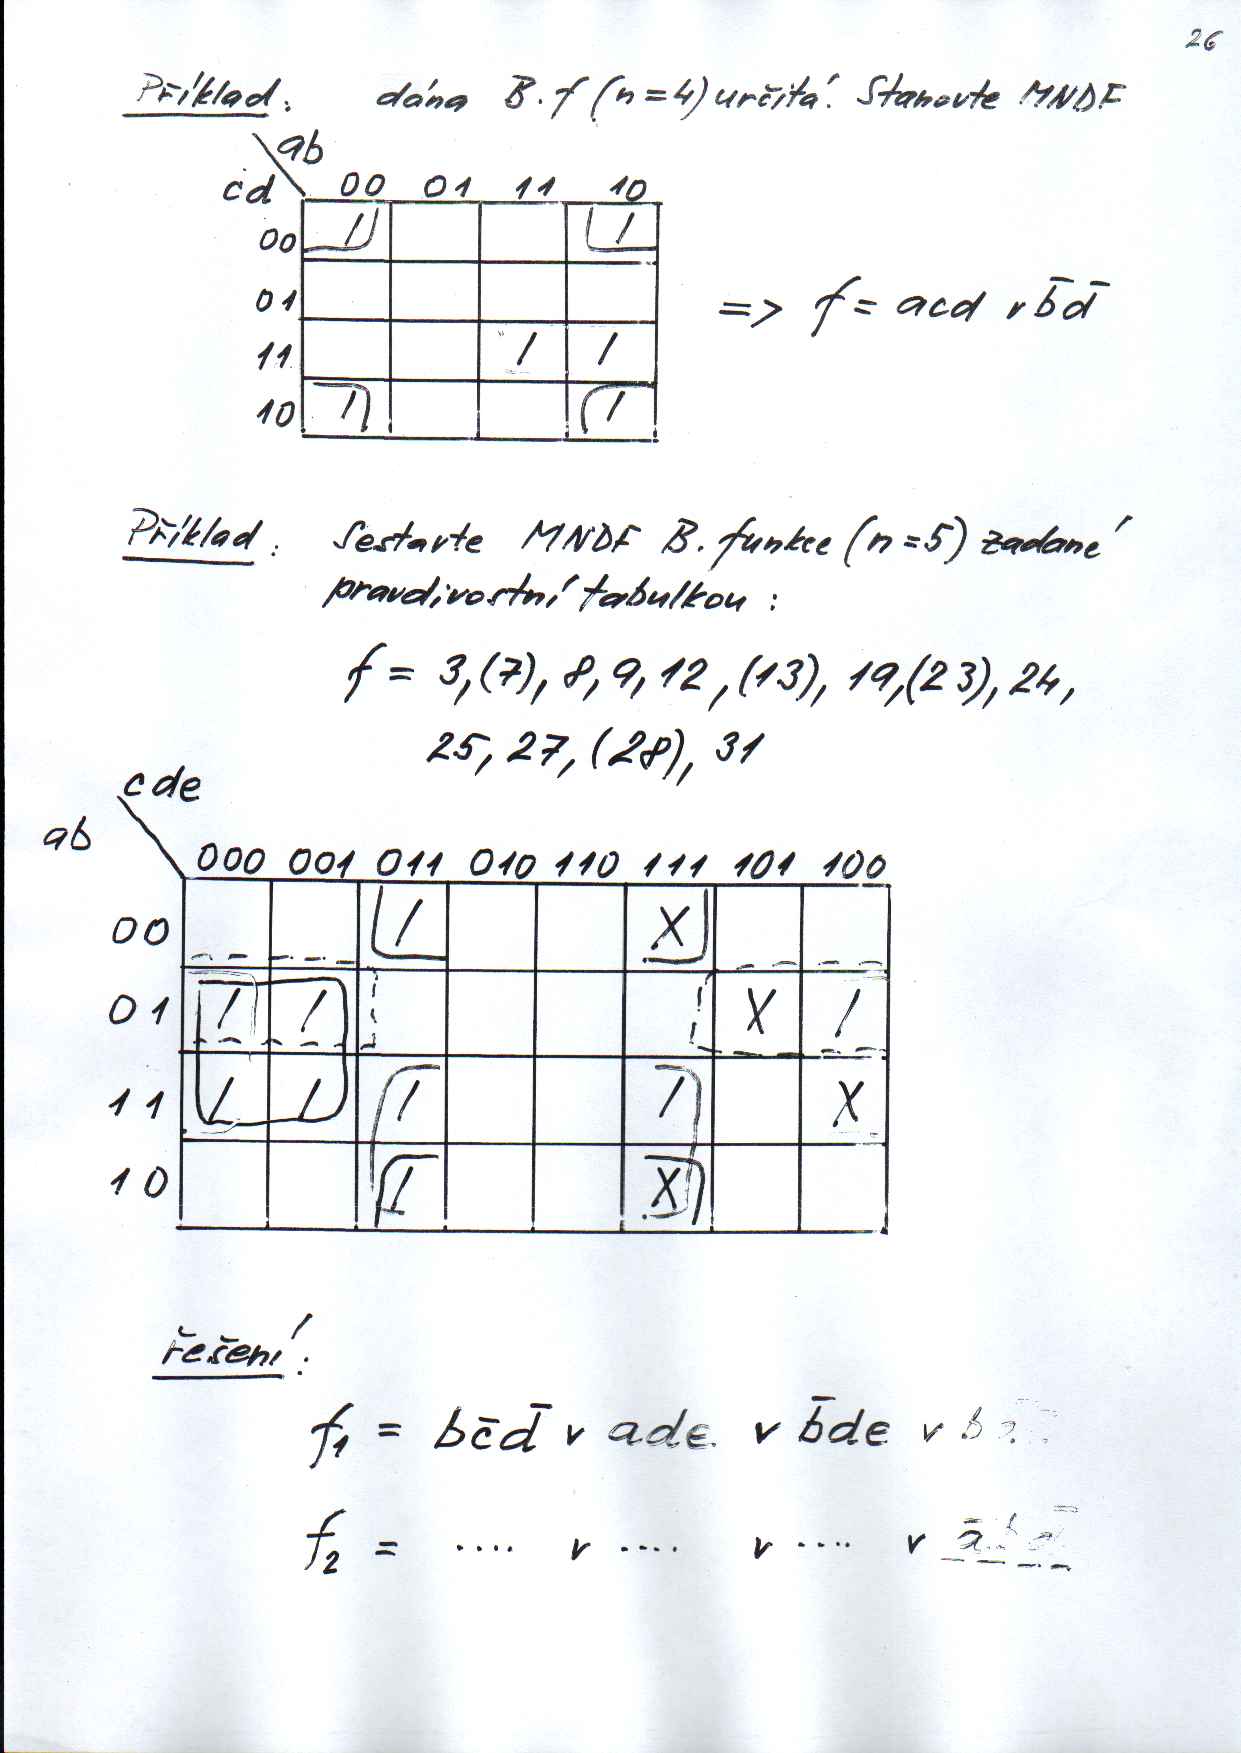 26
Příklad: dána B. f (n=4) určitá. Stanovte MNDF
ab
cd 00 01 11 10
00 1 1
01
11 1 1
10 1 1
=> f = acd v b̄d̄
Příklad: Sestavte MNDF B. funkce (n=5) zadané
pravdivostní tabulkou:
f = 3,(7), 8, 9, 12, (13), 19,(23), 24,
25, 27, (28), 31
cde
ab
000 001 011 010 110 111 101 100
00 1 X
01 1 1 X 1
11 1 1 1 1 X
10 1 X
řešení:
f1 = bc̄d̄ v ade v b̄de v b
f2 = .... v .... v .... v